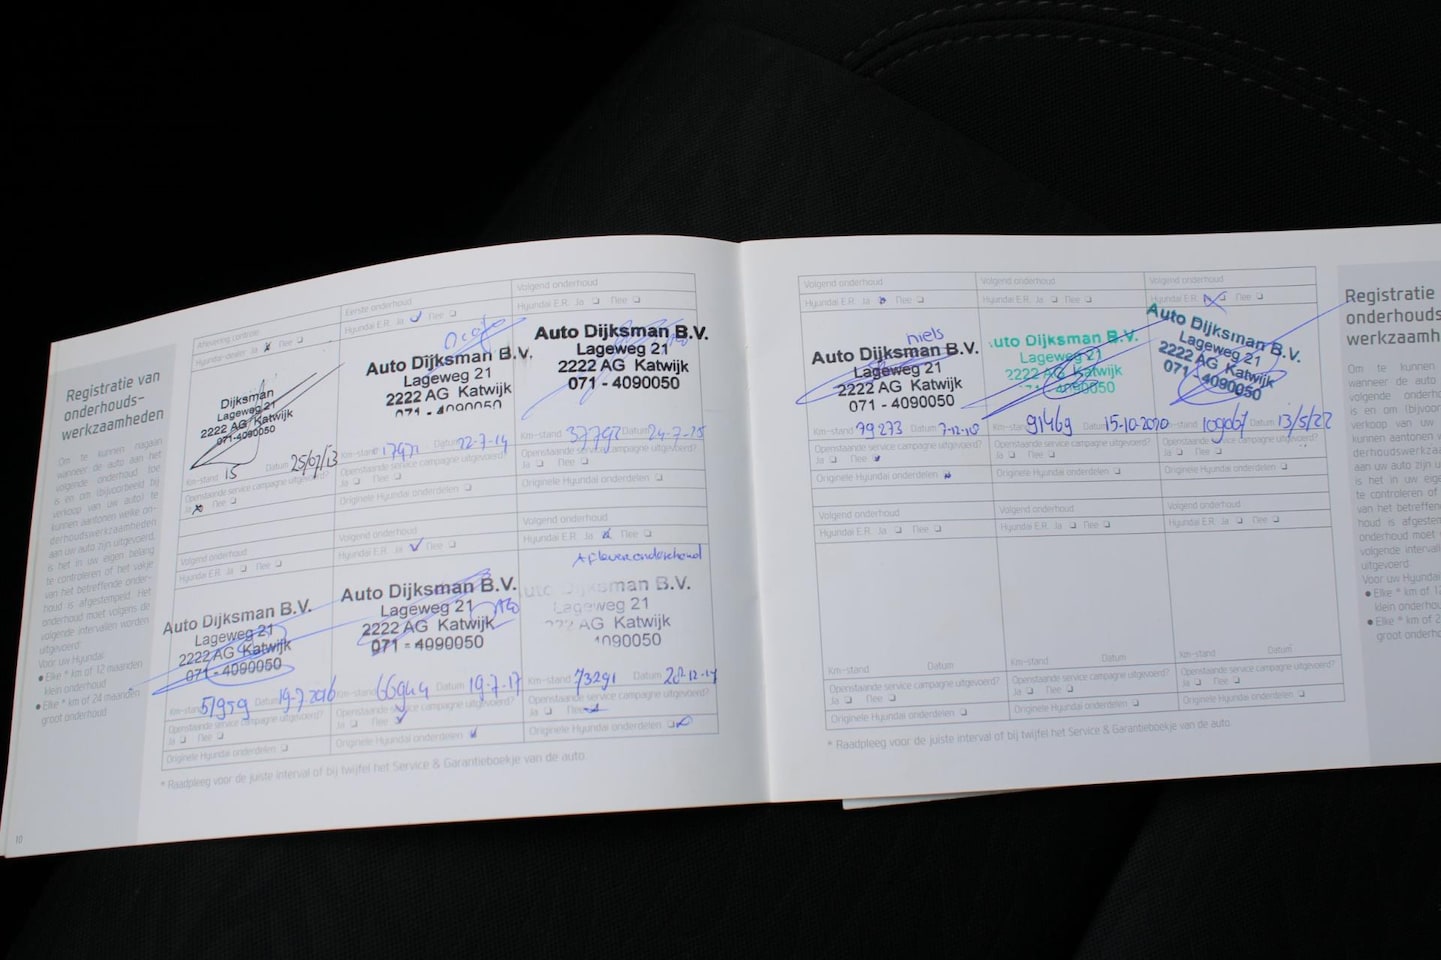 Registratie van
onderhouds-
werkzaamheden
Om te kunnen nagaan
wanneer de auto aan het
volgende onderhoud toe
is en om (bijvoorbeeld bij
verkoop van uw auto) te
kunnen aantonen welke on-
derhoudswerkzaamheden
aan uw auto zijn uitgevoerd,
is het in uw eigen belang
te controleren of het vakje
van het betreffende onder-
houd is afgestempeld. Het
onderhoud moet volgens de
volgende intervallen worden
uitgevoerd:
Voor uw Hyundai:
● Elke * km of 12 maanden
klein onderhoud
● Elke * km of 24 maanden
groot onderhoud
10
Aflevering controle
Hyundai-dealer Ja Nee
Dijksman
Lageweg 21
2222 AG Katwijk
071-4090050
Km-stand 15 Datum 25/07/13
Openstaande service campagne uitgevoerd?
Ja Nee
Eerste onderhoud
Hyundai E.R. Ja Nee
Auto Dijksman B.V.
Lageweg 21
2222 AG Katwijk
071 - 4090050
Km-stand Datum 22-7-14
Openstaande service campagne uitgevoerd?
Ja Nee
Originele Hyundai onderdelen
Volgend onderhoud
Hyundai E.R. Ja Nee
Auto Dijksman B.V.
Lageweg 21
2222 AG Katwijk
071 - 4090050
Km-stand 37792 Datum 24-7-15
Openstaande service campagne uitgevoerd?
Ja Nee
Originele Hyundai onderdelen
Volgend onderhoud
Hyundai E.R. Ja Nee
Auto Dijksman B.V.
Lageweg 21
2222 AG Katwijk
071 - 4090050
Km-stand 51959 Datum 19-7-2016
Openstaande service campagne uitgevoerd?
Ja Nee
Originele Hyundai onderdelen
Volgend onderhoud
Hyundai E.R. Ja Nee
Auto Dijksman B.V.
Lageweg 21
2222 AG Katwijk
071 - 4090050
Km-stand 66944 Datum 19-7-17
Openstaande service campagne uitgevoerd?
Ja Nee
Originele Hyundai onderdelen
Volgend onderhoud
Hyundai E.R. Ja Nee
Afleveronderhoud
uto Dijksman B.V.
Lageweg 21
2222 AG Katwijk
4090050
Km-stand 73291 Datum 20-12-17
Openstaande service campagne uitgevoerd?
Ja Nee
Originele Hyundai onderdelen
* Raadpleeg voor de juiste interval of bij twijfel het Service & Garantieboekje van de auto.
Volgend onderhoud
Hyundai E.R. Ja Nee
niels
Auto Dijksman B.V.
Lageweg 21
2222 AG Katwijk
071 - 4090050
Km-stand Datum
Openstaande service campagne uitgevoerd?
Ja Nee
Originele Hyundai onderdelen
Volgend onderhoud
Hyundai E.R. Ja Nee
uto Dijksman B.V.
Lageweg 21
2222 AG Katwijk
Km-stand 91469 Datum 15-10-2020
Openstaande service campagne uitgevoerd?
Ja Nee
Originele Hyundai onderdelen
Volgend onderhoud
Hyundai E.R. Nee
Auto Dijksman B.V.
Lageweg 21
2222 AG Katwijk
071 - 4090050
Km-stand 109067 Datum 13/5/22
Openstaande service campagne uitgevoerd?
Ja Nee
Originele Hyundai onderdelen
Volgend onderhoud
Hyundai E.R. Ja Nee
Km-stand Datum
Openstaande service campagne uitgevoerd?
Ja Nee
Originele Hyundai onderdelen
Volgend onderhoud
Hyundai E.R. Ja Nee
Km-stand Datum
Openstaande service campagne uitgevoerd?
Ja Nee
Originele Hyundai onderdelen
Volgend onderhoud
Hyundai E.R. Ja Nee
Km-stand Datum
Openstaande service campagne uitgevoerd?
Ja Nee
Originele Hyundai onderdelen
* Raadpleeg voor de juiste interval of bij twijfel het Service & Garantieboekje van de auto.
Registratie
onderhouds
werkzaamh
Om te kunnen
wanneer de auto
volgende onderho
is en om (bijvoor
verkoop van uw
kunnen aantonen
derhoudswerkza
aan uw auto zijn u
is het in uw eige
te controleren of
van het betreffend
houd is afgestem
onderhoud moet
volgende interval
uitgevoerd:
Voor uw Hyundai
● Elke * km of 12
klein onderhou
● Elke * km of 2
groot onderho